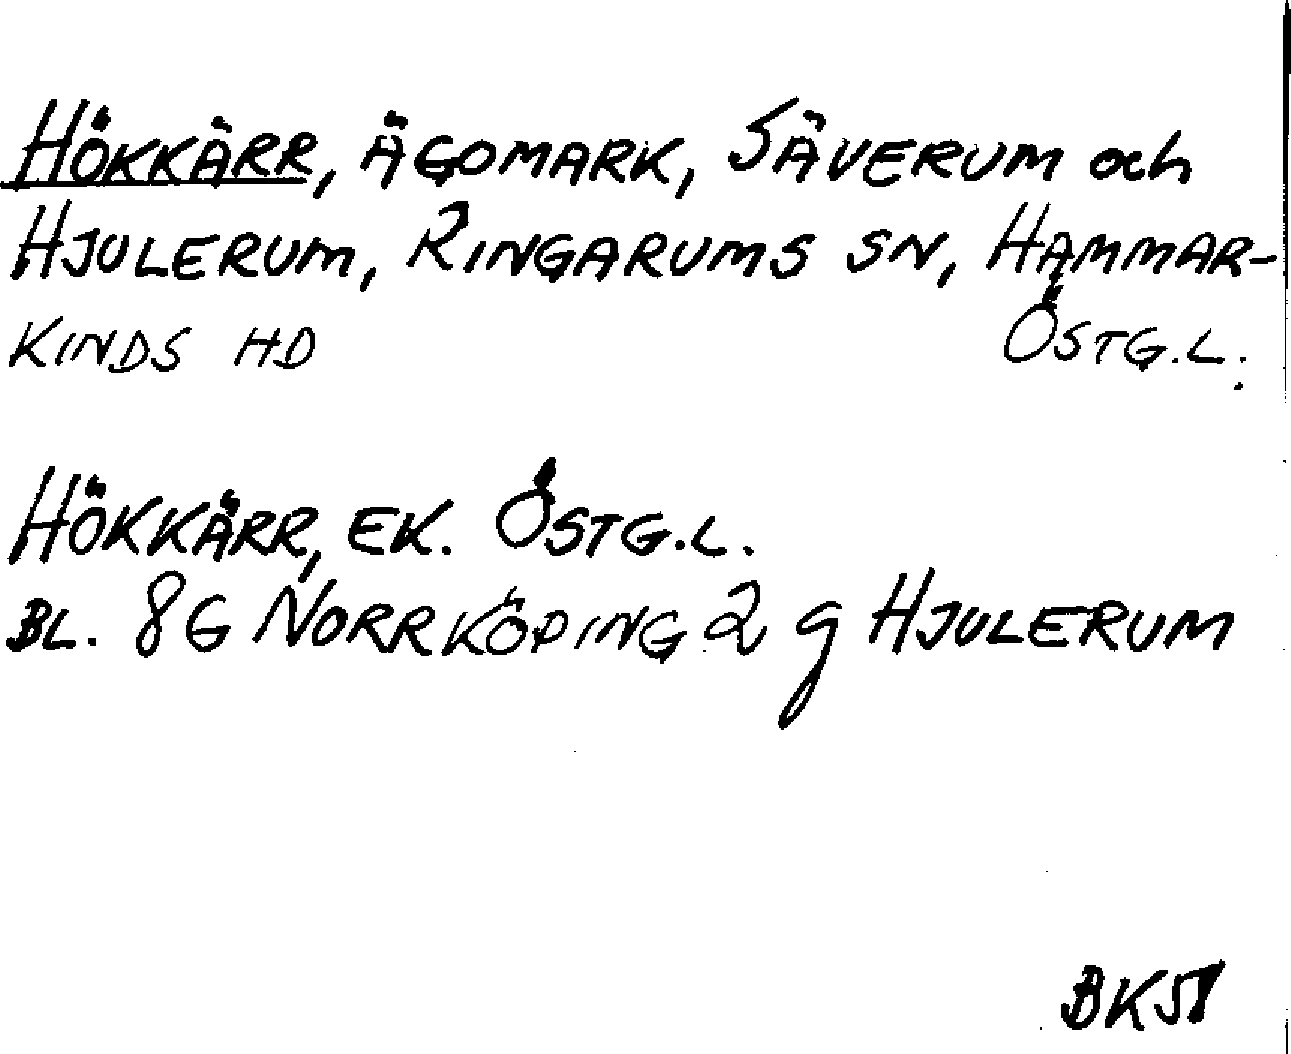 HÖKKÄRR, ÄGOMARK, SÄVERUM och
HJULERUM, RINGARUMS SN, HAMMAR-
KINDS HD ÖSTG.L.
HÖKKÄRR, EK. ÖSTG.L.
BL. 8G NORRKÖPING 2 g HJULERUM